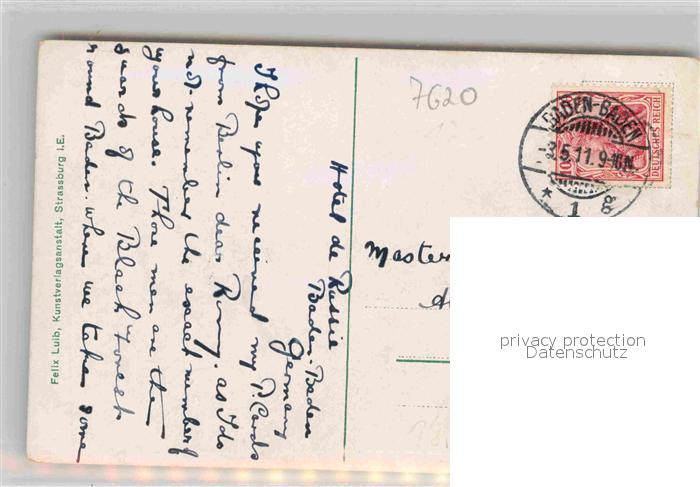 7620
BADEN-BADEN
-3.5.11. 9-10N.
* 1 g
DEUTSCHES REICH
10
Hotel de Russie
Baden-Baden
Germany
I hope you received my P. Cards
from Berlin dear Ronny. as I do
not remember the exact number of
your house. These men are the
guards of the Black Forest
round Baden. where we take some
Master
privacy protection
Datenschutz
Felix Luib, Kunstverlagsanstalt, Strassburg i.E.